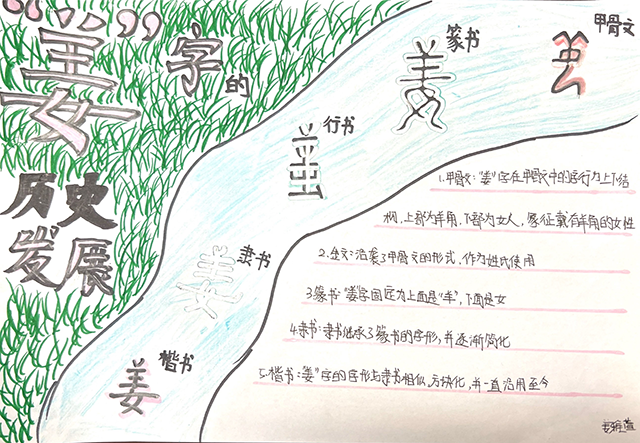 “姜”字的
历史
发展
甲骨文
篆书
姜
行书
隶书
楷书
姜
1.甲骨文:“姜”字在甲骨文中的字行为上下结
构,上部为羊角,下部为女人,象征戴有羊角的女性
2.金文:沿袭了甲骨文的形式,作为姓氏使用
3.篆书:“姜”字固定为上面是“羊”,下面是女
4.隶书:隶书继承了篆书的字形,并逐渐简化
5.楷书:“姜”字的字形与隶书相似,方块化,并一直沿用至今